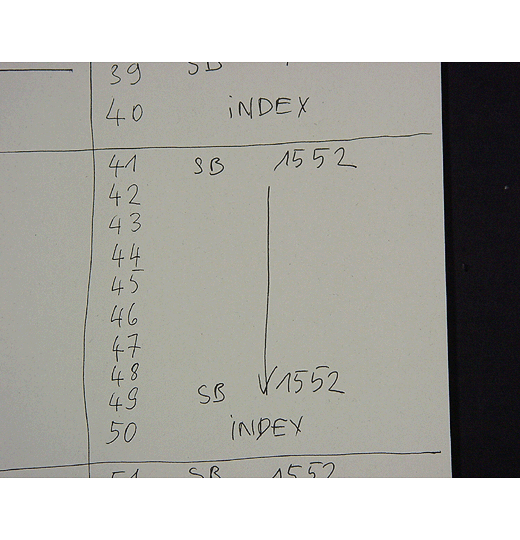 39 SB
40 iNDEX
41 SB 1552
42
43
44
45
46
47
48
49 SB 1552
50 iNDEX
51 SB 1552